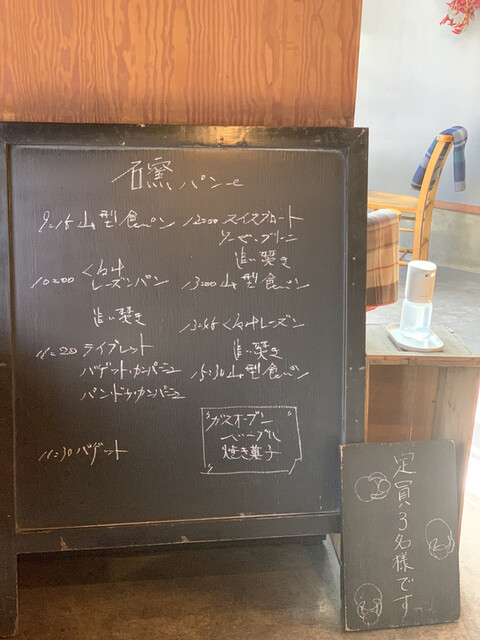 石窯 パン
9:15 山型 食パン
10:00 くるみ
レーズンパン
追い焚き
11:20 ライブレット
バゲット・カンパーニュ
パンドゥ・カンパーニュ
11:30 バゲット
12:00 スイスブロート
リーン・グリーニ
追い焚き
13:00 山型 食パン
13:45 くるみレーズン
追い焚き
15:30 山型 食パン
ガスオーブン
ベーグル
焼き菓子
定員3名様です